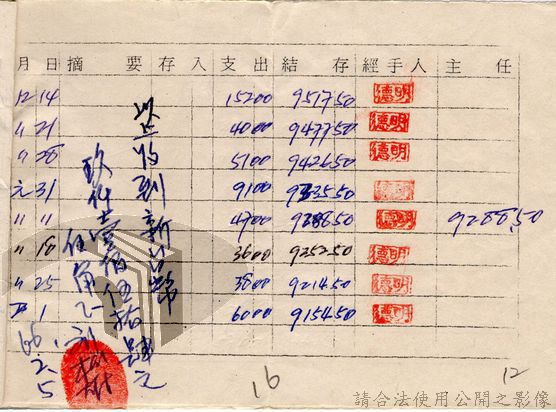 月 日 摘 要 存 入 支 出 結 存 經 手 人 主 任
12 14 15200 951750 德明
〃 21 4000 947750 德明
〃 28 5100 942650 德明
元 31 9100 933550
〃 〃 4700 928850 德明 928850
〃 18 3600 925250 德明
〃 25 3800 921450 德明
1 6000 915450 德明
以上收到新台幣
玖仟壹佰伍拾肆元
伍角正
66.2.5
16
12
請合法使用公開之影像